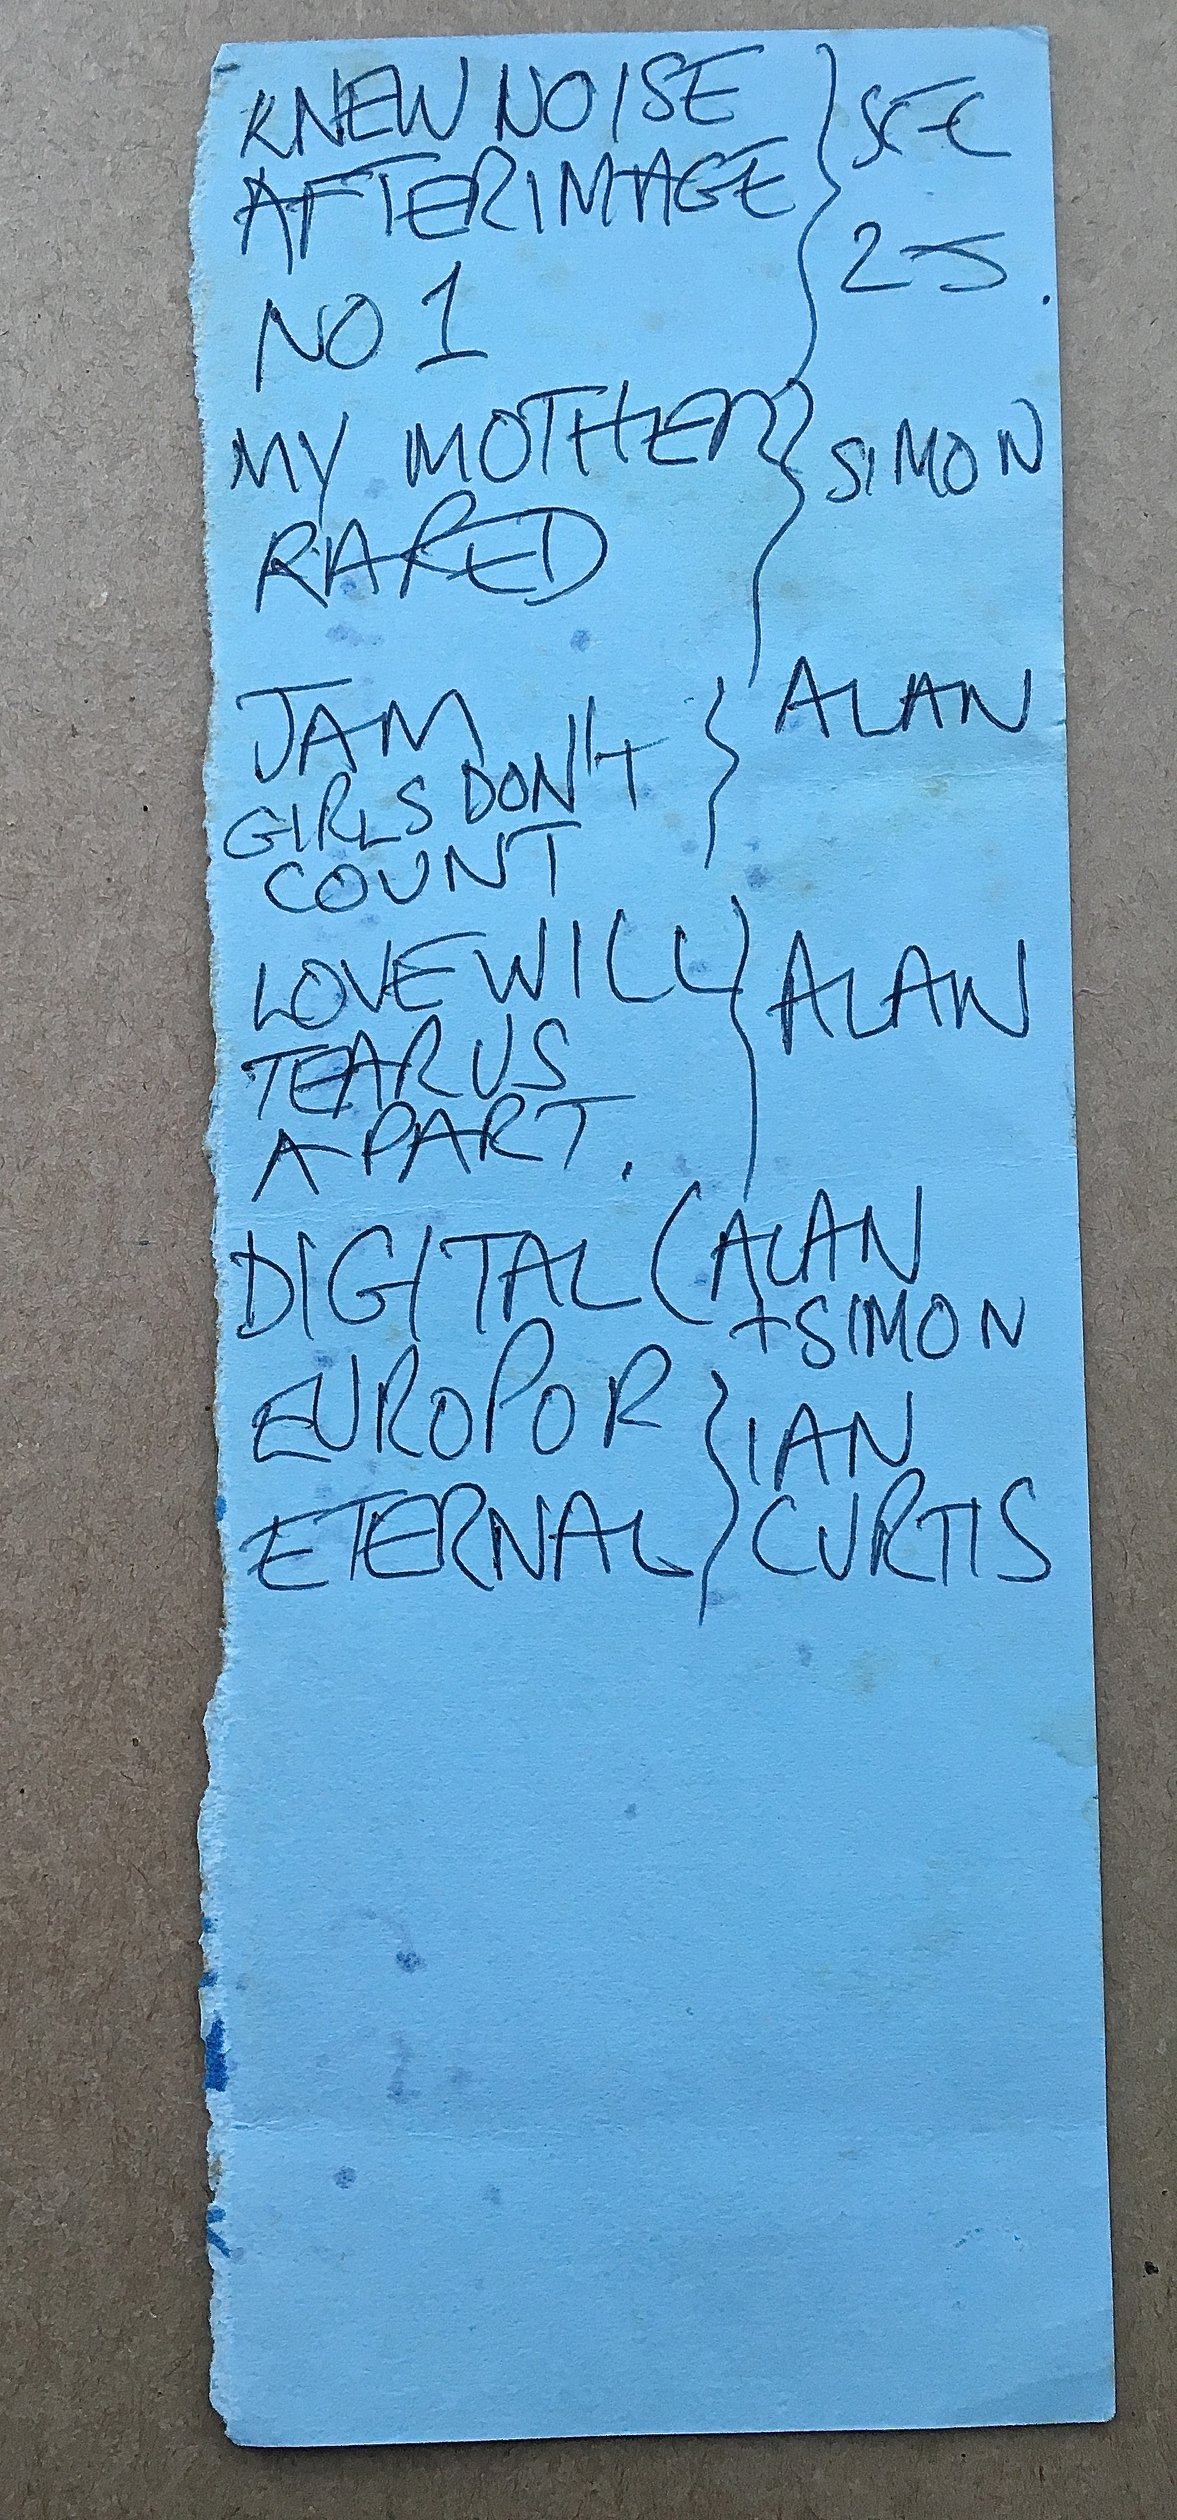 KNEW NOISE
AFTERIMAGE
SEC
25.
NO 1
MY MOTHER
RARED
SIMON
JAM
GIRLS DON'T
COUNT
ALAN
LOVE WILL
TEAR US
APART.
ALAN
DIGITAL (ALAN
+ SIMON
EUROPOR
ETERNAL
IAN
CURTIS